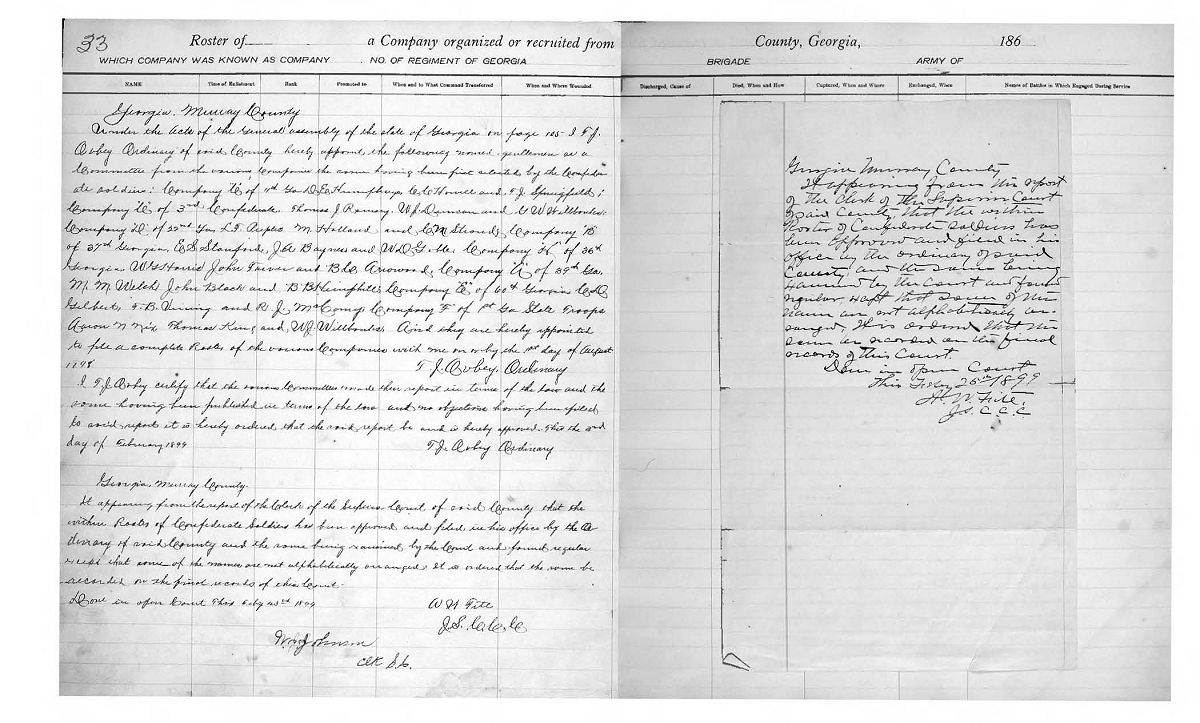 33
Roster of a Company organized or recruited from County, Georgia, 186
WHICH COMPANY WAS KNOWN AS COMPANY . NO. OF REGIMENT OF GEORGIA BRIGADE ARMY OF
NAME Time of Enlistment Rank Promoted to When and to What Command Transferred When and Where Wounded Discharged, Cause of Died, When and How Captured, When and Where Exchanged, When Names of Battles in Which Engaged During Service
Georgia, Murray County
Under the Acts of the General assembly of the state of Georgia on page 105 I T.J.
Ordinary of said County hereby appoint the following named gentlemen as a
Committee from the various Companies the same having been first selected by the Confeder
ate soldiers: Company of Ga D.E. Humphreys C.C. Howell and T.J. Springfield;
Company C of 3rd Confederate. Thomas J Ramsey, W.J. and
Company of Ga, L.T. M. Holland and Company B
of 37th Georgia, E.S. Stanford, J.A. Baynes and W.D. Company H of 36th
Georgia. John and Company A of 39th Ga.
M. M. Welch John Black and B.B. Hemphill Company E of 60th Georgia
Gilbert, T.B. Vining and R J McCamy Company F of 1st Ga State Troops
Aaron N Nix, Thomas King and W.J. And they are hereby appointed
to file a complete Roster of the various Companies with me on or by the 1st day of August
1898 T J. Ordinary
I T.J. certify that the various Committees made their report in terms of the law and the
same having been published in terms of the law and no objections having been filed
to said report it is hereby ordered that the said report be and is hereby approved. This the 3rd
day of February 1899 T.J. Ordinary
Georgia, Murray County.
It appearing from the report of the Clerk of the Superior Court of said County that the
within Roster of Confederate Soldiers has been approved and filed in his office by the Or
dinary of said County and the same being examined by the Court and found regular
except that some of the names are not alphabetically arranged. It is ordered that the same be
recorded on the final records of this Court.
Done in open Court This Feby 1899 Fite
J.S.C.C.C.
Johnson
Clk S.C.
Georgia Murray County
It appearing from the report
of the Clerk of the Superior Court
of said County that the within
Roster of Confederate Soldiers has
been approved and filed in his
office by the Ordinary of said
County and the same being
examined by the Court and found
regular except that some of the
names are not alphabetically ar-
ranged. It is ordered that the
same be recorded on the final
records of this Court.
Done in open Court
This Feby 1899
A. W. Fite.
J.S.C.C.C